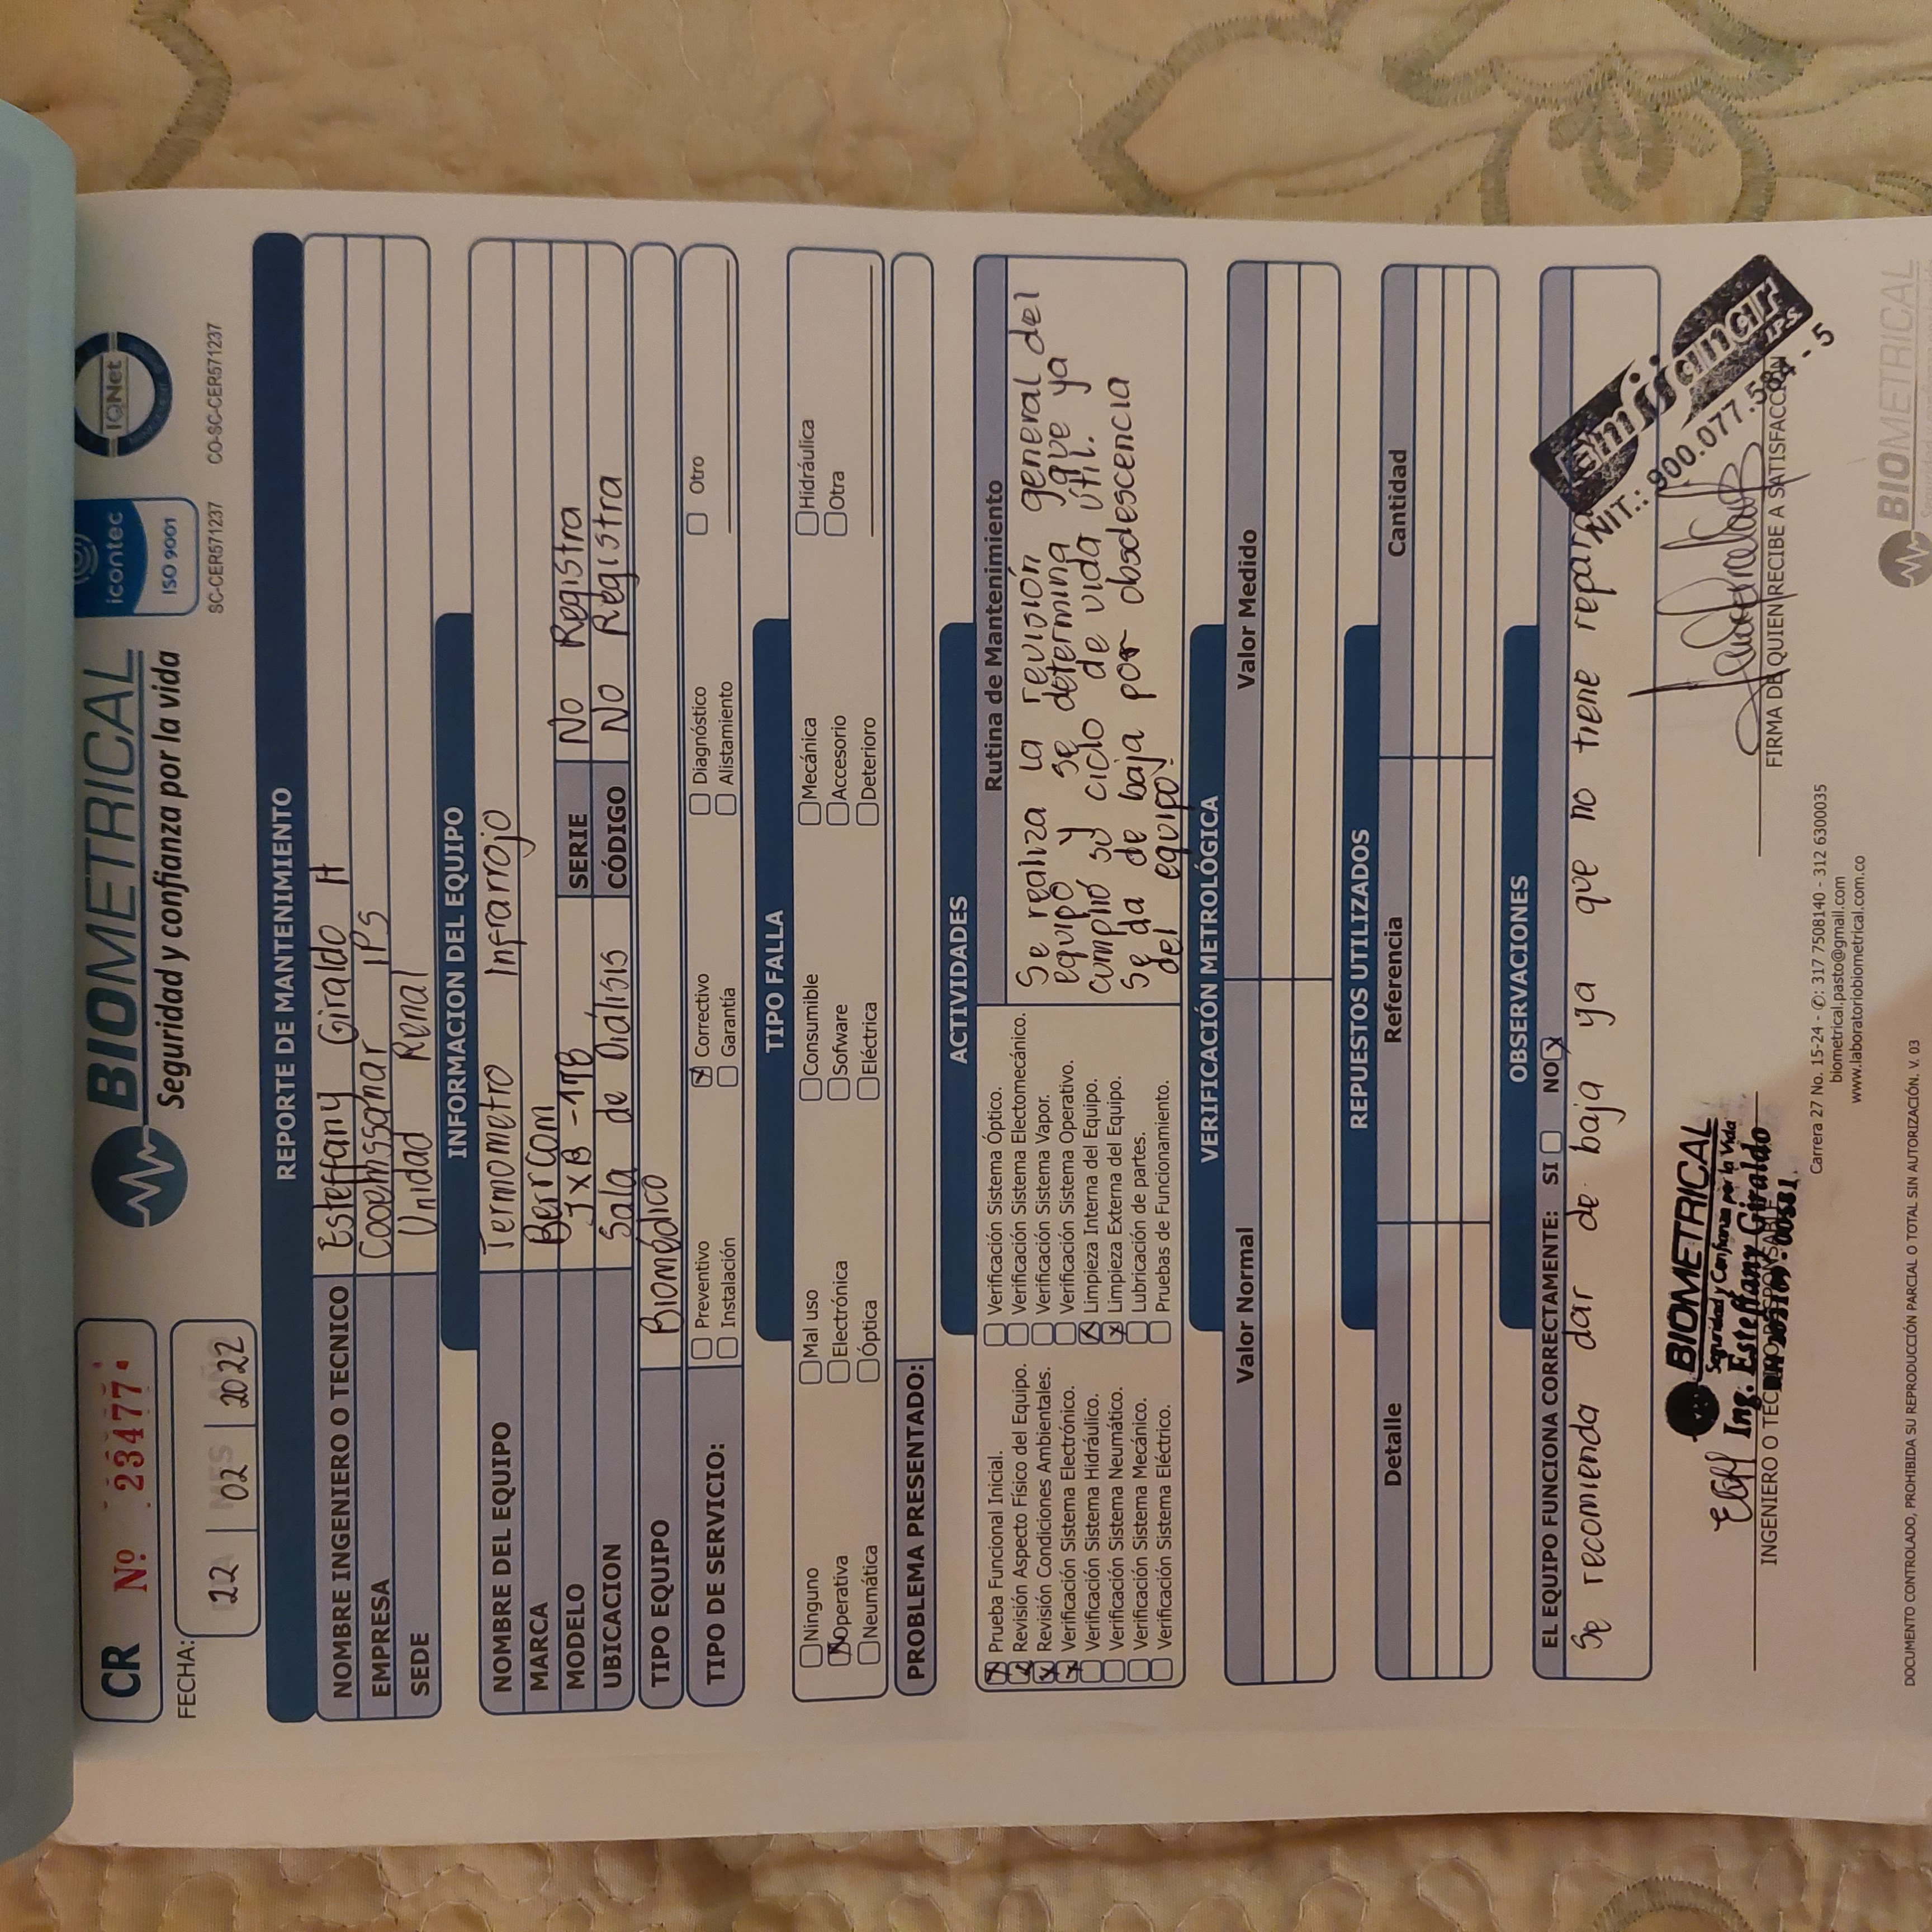 CR Nº 23477
BIOMETRICAL
Seguridad y confianza por la vida
icontec
ISO 9001
SC-CER571237
IQNet
CO-SC-CER571237
FECHA:
22 02 2022
REPORTE DE MANTENIMIENTO
NOMBRE INGENIERO O TECNICO Esteffany Giraldo H
EMPRESA Cooemssanar IPS
SEDE Unidad Renal
INFORMACION DEL EQUIPO
NOMBRE DEL EQUIPO Termometro Infrarrojo
MARCA Berrcom
MODELO JXB-178 SERIE No Registra
UBICACION Sala de Diálisis CÓDIGO No Registra
TIPO EQUIPO Biomédico
TIPO DE SERVICIO:
Preventivo Correctivo Diagnóstico Otro
Instalación Garantía Alistamiento
TIPO FALLA
Ninguno Mal uso Consumible Mecánica Hidráulica
Operativa Electrónica Sofware Accesorio Otra
Neumática Óptica Eléctrica Deterioro
PROBLEMA PRESENTADO:
ACTIVIDADES
Prueba Funcional Inicial.
Revisión Aspecto Físico del Equipo.
Revisión Condiciones Ambientales.
Verificación Sistema Electrónico.
Verificación Sistema Hidráulico.
Verificación Sistema Neumático.
Verificación Sistema Mecánico.
Verificación Sistema Eléctrico.
Verificación Sistema Óptico.
Verificación Sistema Electomecánico.
Verificación Sistema Vapor.
Verificación Sistema Operativo.
Limpieza Interna del Equipo.
Limpieza Externa del Equipo.
Lubricación de partes.
Pruebas de Funcionamiento.
Rutina de Mantenimiento
Se realiza la revisión general del
equipo y se determina que ya
cumplió su ciclo de vida útil.
Se da de baja por obsolescencia
del equipo.
VERIFICACIÓN METROLÓGICA
Valor Normal Valor Medido
REPUESTOS UTILIZADOS
Detalle Referencia Cantidad
OBSERVACIONES
EL EQUIPO FUNCIONA CORRECTAMENTE: SI NO
Se recomienda dar de baja ya que no tiene
Emssanar IPS
NIT.: 900.077.584 - 5
BIOMETRICAL
Seguridad y Confianza por la Vida
EGH Ing. Esteffany Giraldo
INGENIERO O TECNICO RESPONSABLE
FIRMA DE QUIEN RECIBE A SATISFACCIÓN
Carrera 27 No. 15-24 - ✆: 317 7508140 - 312 6300035
biometrical.pasto@gmail.com
www.laboratoriobiometrical.com.co
DOCUMENTO CONTROLADO, PROHIBIDA SU REPRODUCCIÓN PARCIAL O TOTAL SIN AUTORIZACIÓN. V. 03
BIOMETRICAL
Seguridad y confianza por la vida